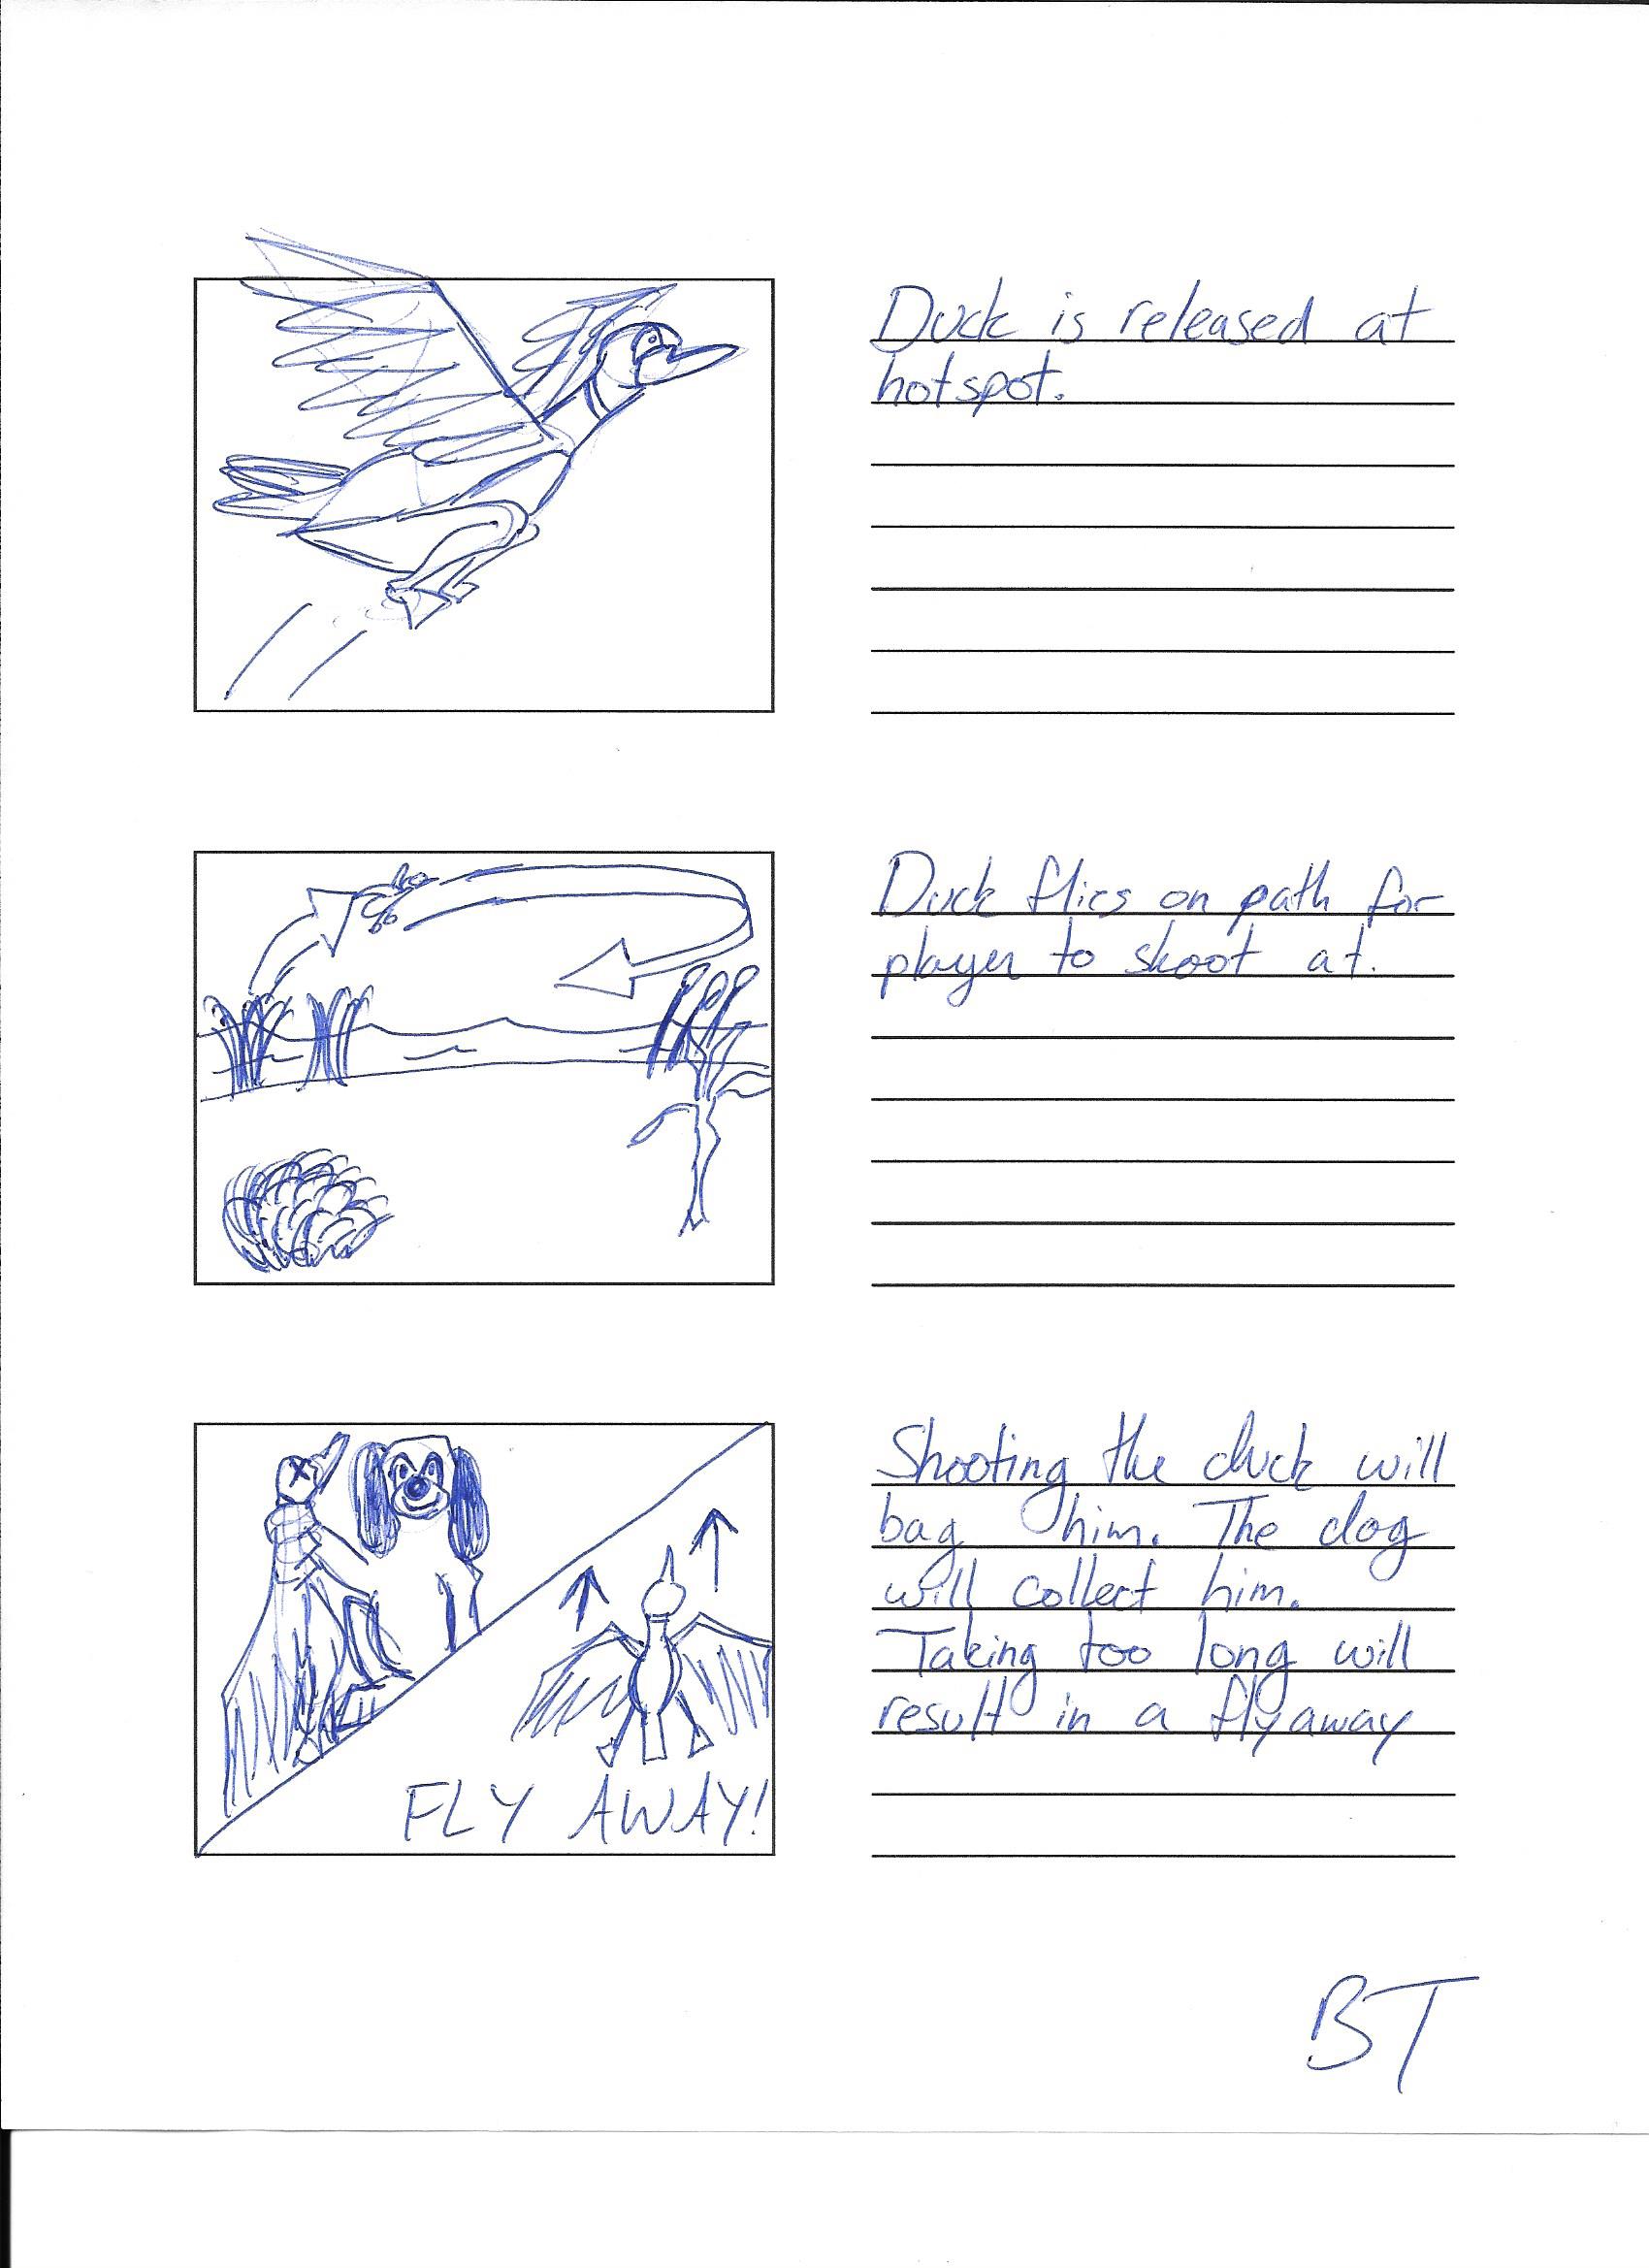 Duck is released at
hotspot.
Duck flies on path for
player to shoot at.
Shooting the duck will
bag him. The dog
will collect him.
Taking too long will
result in a flyaway
FLY AWAY!
BT